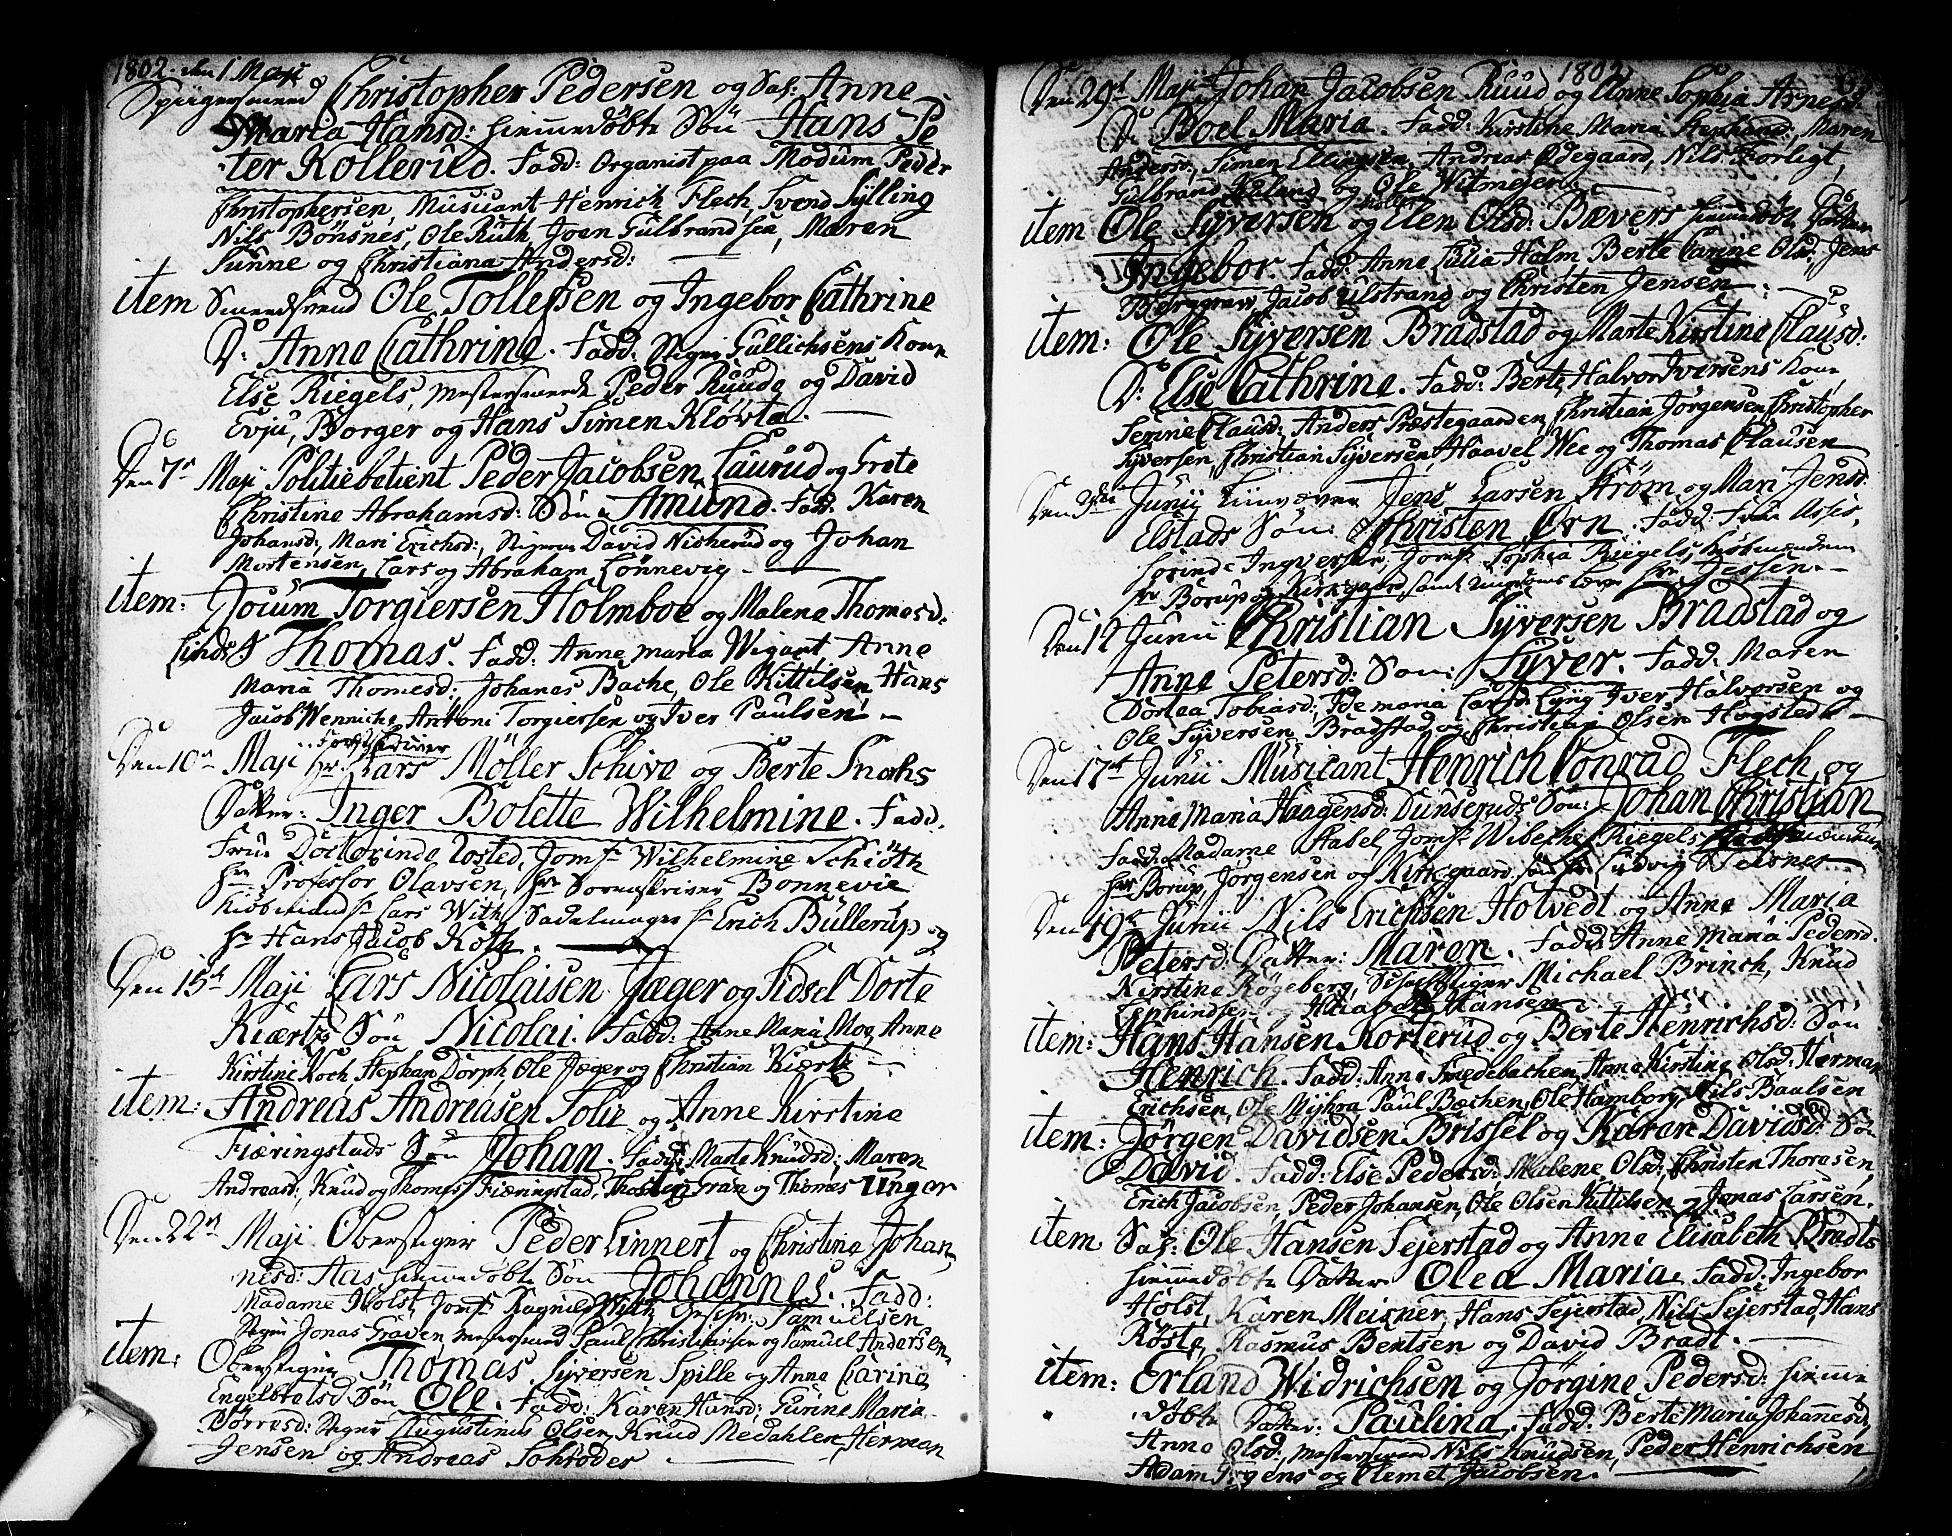 1802. den 1 Maji
Christopher Pedersen og Sal: Anne
Maria Hansd: hiemmedøbte Søn Hans Pe
ter Kollerud. Fadd: Organist paa Modum Peder
Christophersen, Musicant Henrich Flech, Svend Sylling
Nils Bønsnes, Ole Ruth, Joen Gulbrandsen, Maren
Sunne og Christiana Andersd:
item Ole Tollefsen og Ingebor Cathrine
D: Anne Cathrine. Fadd: Stiger Gullichsens Kone
Else Riegels, Mestersmed Peder Ruude og David
Evju, Borger og Hans Simen Kløvta.
Den 7n Maji Politiebetient Peder Jacobsen Laurud og Grete
Christine Abrahamsd: Søn Amund. Fadd: Karen
Johansd:, Mari Erichsd:, Stigerne David Nisherud og Johan
Mortensen, Lars og Abraham Lønnevig
item: Jocum Torgiersen Holmboe og Malene Thomesd.
Linds S Thomas. Fadd: Anne Maria Wigart Anne
Maria Thomesd: Johanas Bache, Ole Kittilsen, Hans
Jacob Wenniche, Anthoni Torgiersen og Iver Paulsen.
Den 10n Maji Hr Lars Møller Schive og Berte Smohs
Datter: Inger Bolette Wilhelmine. Fadd.
Frue Doctorinde Tosted, Jomfr Wilhelmine Schiøth
Hr Professor Olavsen, Hr Sorenskriver Bonnevie
Kiøbmand Hr Lars With, Sadelmager Hr Erich Bullerup og
Hr Hans Jacob Koth.
Den 15n Maji Lars Nicolaisen Jæger og Sidsel Dorte
Kiærtz Søn Nicolai. Fadd: Anne Maria Moe, Anne
Kirstine Koch Stephan Dorph, Ole Jæger og Christian Kiærtz
item: Andreas Andreasen Solie og Anne Kirstine
Fiæringstads Søn Johan. Fadd: Marte Knudsd: Maren
Andreasd:, Knud og Thomas Fiæringstad, Thosten Gran og Thomes Unger
Den 22n Maji Oberstiger Peder Linnert og Christine Johan
nesd: Aas hiemmedøbte Søn Johannes. Fadd:
Madame Holst, Jomfr Ragnild With, Samuelsen
Stiger Jonas Graven Mestersmed Paul Christiansen og Samuel Andersen
item: Oberstiger Thomas Syversen Spille og Anne Carine
Engelbretsd Søn Ole. Fadd: Karen Hansd: Gurine Maria
Børresd: Stiger Augustinus Olsen, Knud Medahlen, Herman
Jensen og Andreas Schrøder
1802
Den 29d Maji Johan Jacobsen Ruud og Anne Sophia Arnesd.
D: Boel Maria. Fadd: Kirstine Maria Stephansd, Maren
Andersd, Simen Ellingsen, Andreas Ødegaard, Nils Forligt,
Gulbrand og Ole Witmejer
item Ole Syversen og Elen Olsd: Bævers hiemmedøbt Datter
Ingebor. Fadd: Anne Lulia Holm Berte Carine Olsd, Jens
Jacob Ulstrand og Christen Jensen
item: Ole Syversen Bradstad og Marte Kirstine Clausd:
D: Else Cathrine. Fadd: Berte Halvor Iversens Kone
Semine Clausd, Anders Præstegaarden, Christian Jørgensen, Christopher
Syversen, Christian Syversen, Haavel Wee og Thomas Clausen
Den 9de Junii Jens Larsen Strøm og Mari Jensd
Elstads Søn: Christen Ørn. Fadd: Frue Asses.
Ingversen, Jomfr Sophia Riegels, Kiøbmændene
Hr Borup og Kirkgaard samt Hr Jessen
Den 12 Junii Christian Syversen Bradstad og
Anne Petersd: Søn: Syver. Fadd: Maren
Dortea Tobiasd, Ide Maria Larsd Lyng Iver Halvorsen og
Ole Syversen Bradstad og Christian Olsen Hogsted
Den 17d Junii Musicant Henrich Conrad Flech og
Anne Maria Haagensd: Dunseruds Søn: Johan Christian
Fadd: Madame Hasel, Jomfr Wibeche Riegels
Hr Borup, Jørgensen og Kirkgaard Ludvig Weisner
Den 19d Junii Nils Erichsen Hotvedt og Anne Maria
Petersd: Datter: Maren. Fadd: Anne Maria Pedersd.
Kirstine Røgeberg, Michael Brinch, Knud
Hansen
item: Hans Hansen Korterud og Berte Henrichsd: Søn
Henrich. Fadd: Anne Smedebachen, Anne Kirstine Olsd, Herman
Erichsen, Ole Myhra Paul Bæchen, Ole Hamborg, Nils Baalsen
item: Jørgen Davidsen Brissel og Karen Davidsd: Søn
David. Fadd: Else Pedersd: Malene Olsd, Christen Thoresen,
Erich Jacobsen, Peder Johansen, Ole Olsen Kittilsen og Jonas Larsen.
item Sal: Ole Hansen Sejerstad og Anne Elisabeth Bradts
hiemmedøbte Datter Olea Maria. Fadd: Ingebor
Holst, Karen Meisner, Hans Sejerstad, Nils Sejerstad, Hans
Røste, Rasmus Bentsen og David Bradt.
item: Erland Widrichsen og Jørgine Pedersd: hiemme
døbte Datter: Paulina. Fadd: Berte Maria Johannesd,
Anne Olsd, Mestersmed Nils Knudsen, Peder Henrichsen
Adam Irgens og Clemet Jacobsen.